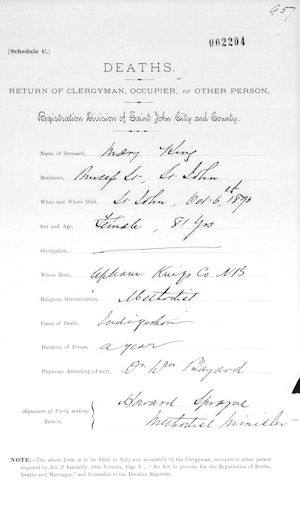 957
002204
[Schedule C.]
DEATHS.
RETURN OF CLERGYMAN, OCCUPIER, OR OTHER PERSON,
Registration Division of Saint John City and County.
Name of Deceased, Mary King
Residence, St., St. John
When and Where Died, St. John, Oct. 6th 1890
Sex and Age, Female, 81 Yrs
Occupation,
Where Born, Upham Kings Co NB
Religious Denomination, Methodist
Cause of Death, Indigestion
Duration of Illness, a year
Physician Attending (if any), Dr. Wm Bayard
Signature of Party making Return, Howard Sprague
Methodist Minister
NOTE.—The above form is to be filled in fully and accurately by the Clergyman, occupier or other person
required by Act of Assembly, 50th Victoria, Cap. V., "An Act to provide for the Registration of Births,
Deaths and Marriages," and forwarded to the Division Registrar.